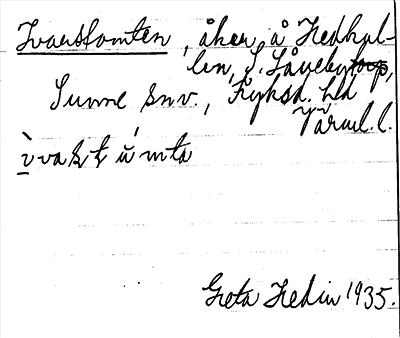 Ivarstomten, åker å Hedkul-
len, S. Låveby,
Sunne snv., Fryksd. hd
Värml. l.
ìvaʂtúmta
Greta Hedin 1935.